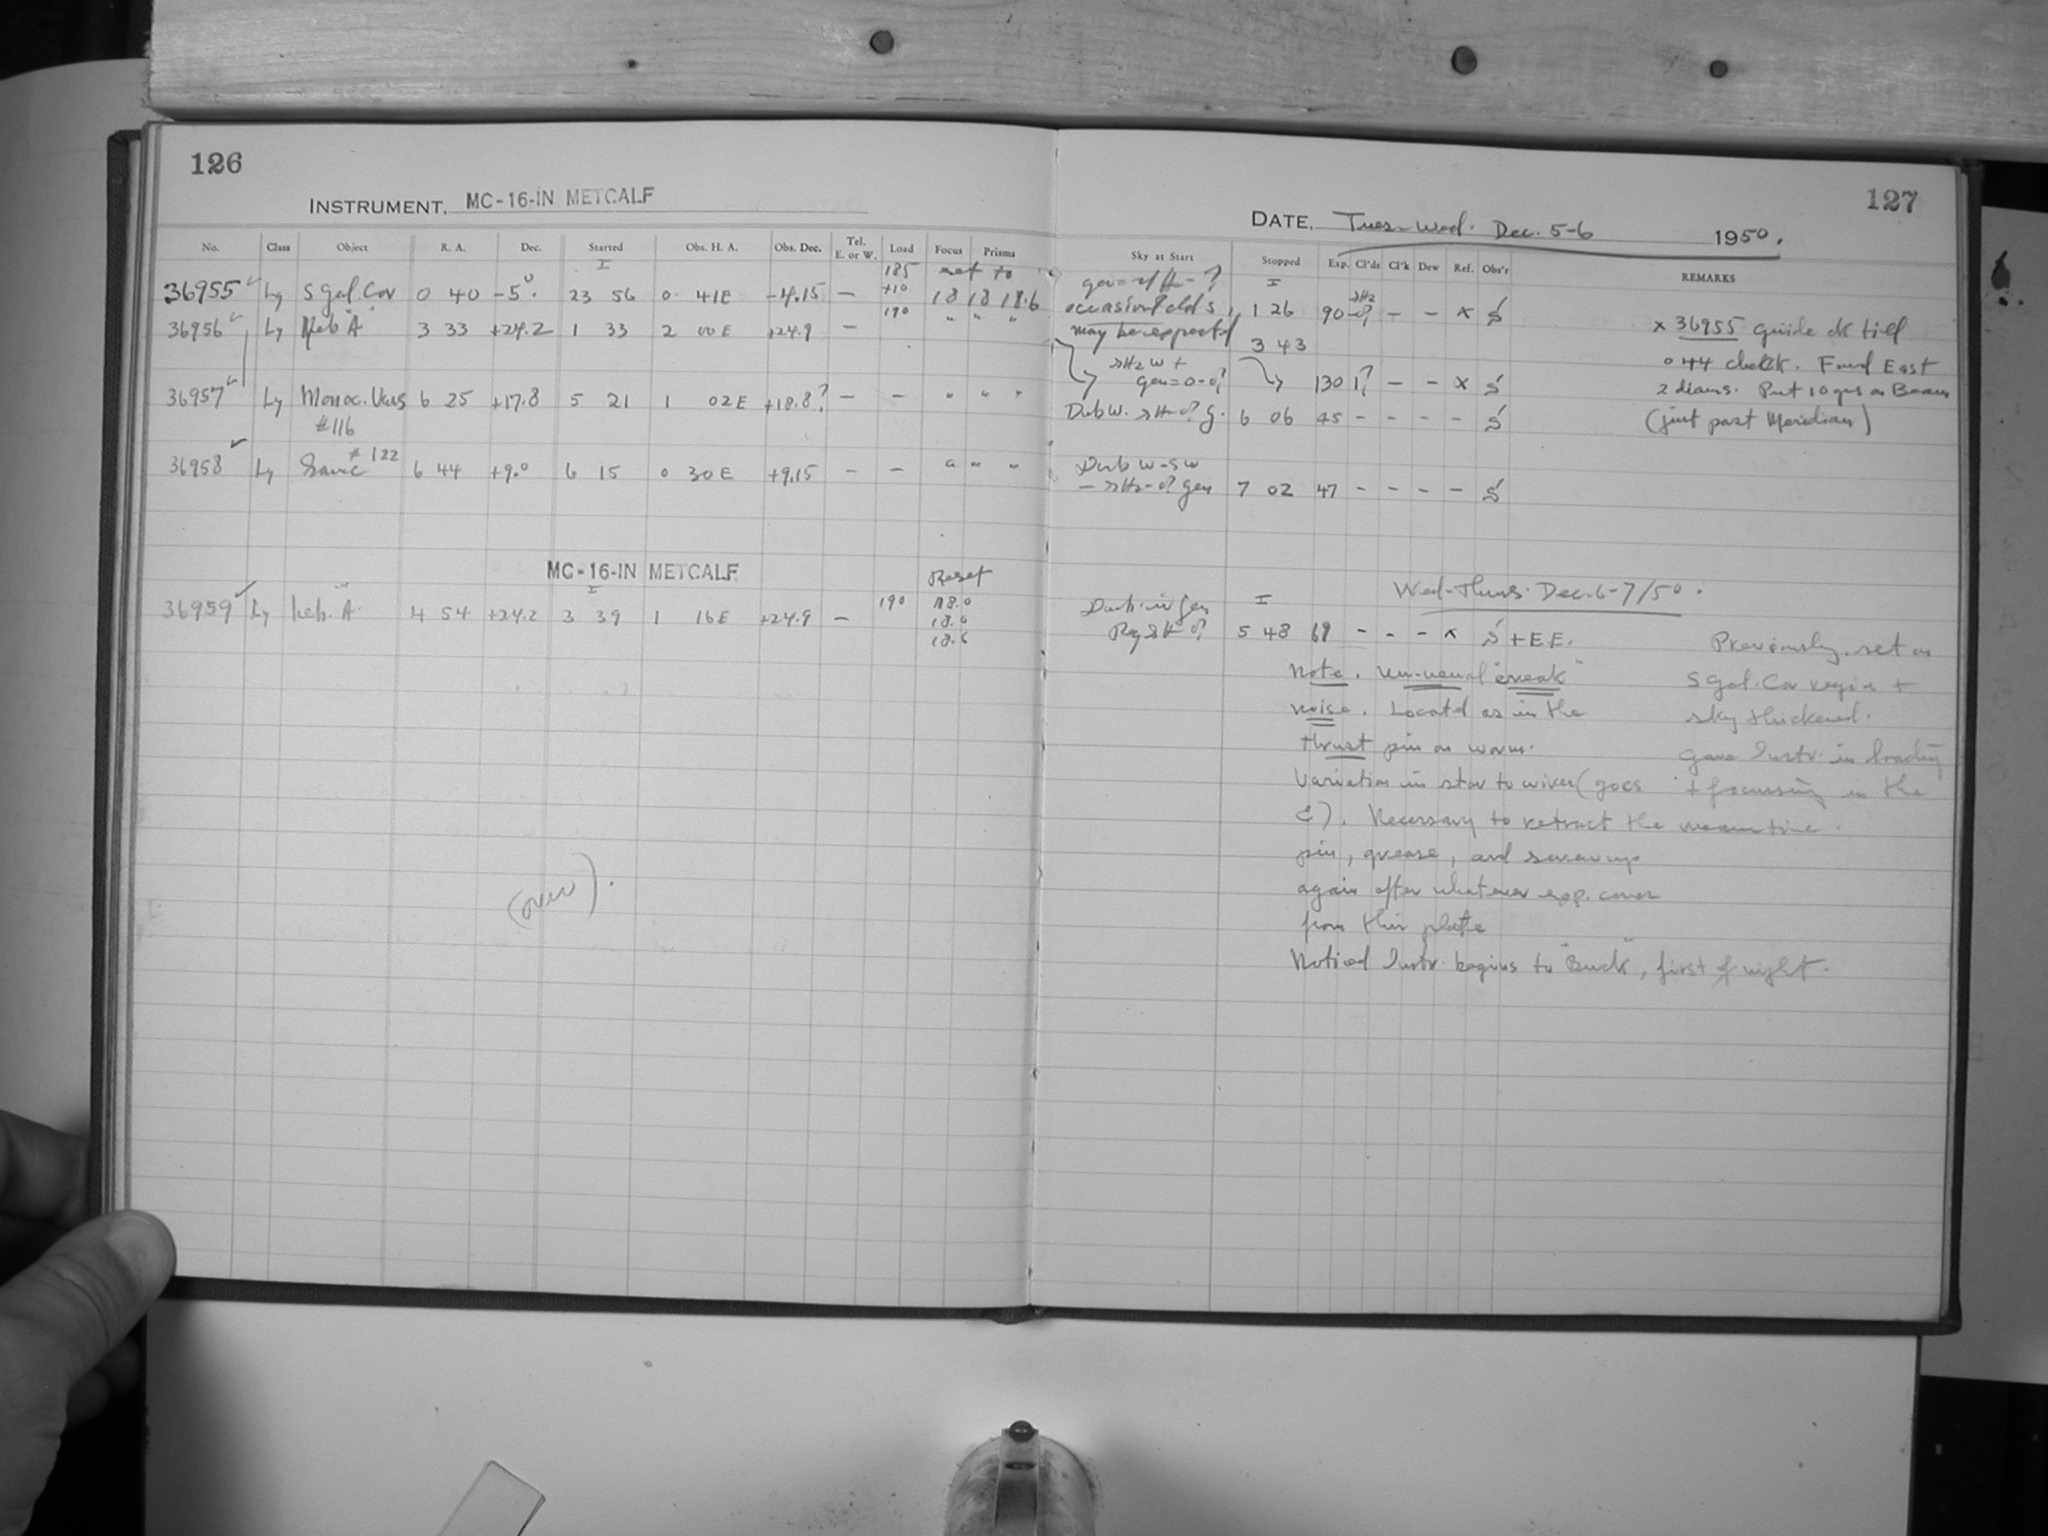 126
INSTRUMENT, MC-16-IN METCALF
No. Class Object R. A. Dec. Started Obs. H. A. Obs. Dec. Tel. E. or W. Load Focus Prisms
I 185 set to
36955 Ly S Gal. Cor 0 40 -5° 23 56 0 41E -4.15 — +10 18 18 18.6
36956 Ly Neb "A" 3 33 +24.2 1 33 2 00E +24.9 — 190 " " "
36957 Ly Monoc. Vars 6 25 +17.8 5 21 1 02E +18.8? — — " " "
#116
36958 Ly Same #122 6 44 +9.0 6 15 0 30E +9.15 — — " " "
MC-16-IN METCALF
I Reset
36959 Ly Neb. A 4 54 +24.2 3 39 1 16E +24.9 — 190 18.0
18.0
18.6
(over).
127
DATE, Tues-Wed. Dec. 5-6 1950.
Sky at Start Stopped Exp. Cl'ds Cl'k Dew Ref. Obs'r REMARKS
I
occasional clds 1 26 90 — — x S
may be expected 3 43
gen=0-0? 130 1? — — x S
6 06 45 - - - - S
7 02 47 - - - - S
x 36955 guide ok till
0 44 check. Found East
2 diams. Put 10 gms on Beam
(just past Meridian)
Wed-Thurs. Dec. 6-7/50.
I
5 48 69 - - - x S+E.E.
Previously, set on
S Gal. Cor region +
sky thickened.
Gave Instr. in loading
+ focussing in the
meantime.
Note. Un-usual "creak"
noise. Located as in the
thrust pin on worm.
Variation in star to wires (goes
E). Necessary to retract the
pin, grease, and screw up
again after whatever exp. comes
from this plate
Noticed Instr. begins to "Buck", first of night.